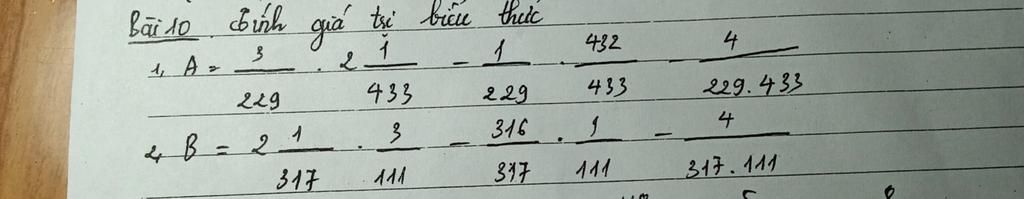 Bài 10. Tính giá trị biểu thức
1, A = 3/229 . 2 1/433 - 1/229 . 432/433 - 4/229.433
2, B = 2 1/317 . 3/111 - 316/317 . 1/111 - 4/317.111